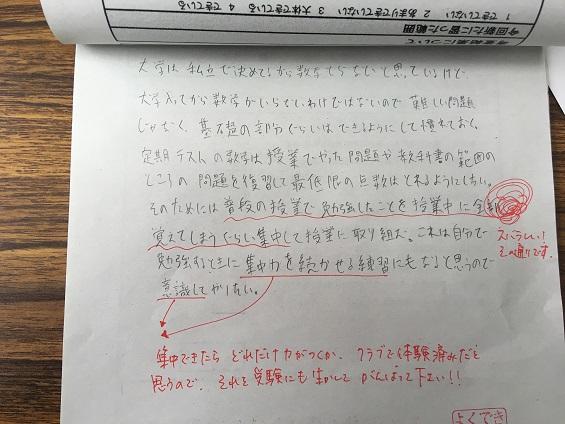 1 できていない 2 あまりできていない 3 大体できている 4 できている
今回新たに習った範囲
大学は 私立で決めてるから数学いらないと思っているけど、
大学入ってから数学がいらないわけではないので 難しい問題
じゃなく、基礎の部分ぐらいはできるようにして慣れておく。
定期テストの数学は授業でやった問題や教科書の範囲の
ところの問題を復習して最低限の点数はとれるようにしたい。
そのためには普段の授業で勉強したことを授業中に全部
覚えてしまうぐらい集中して授業に取り組む。これは自分で
スバラしい!
その通りです。
勉強するときに集中力を続かせる練習にもなると思うので
意識してやりたい。
集中できたら どれだけ力がつくか、クラブで体験済みだと
思うので、それを受験にも生かして がんばって下さい!!
よくでき